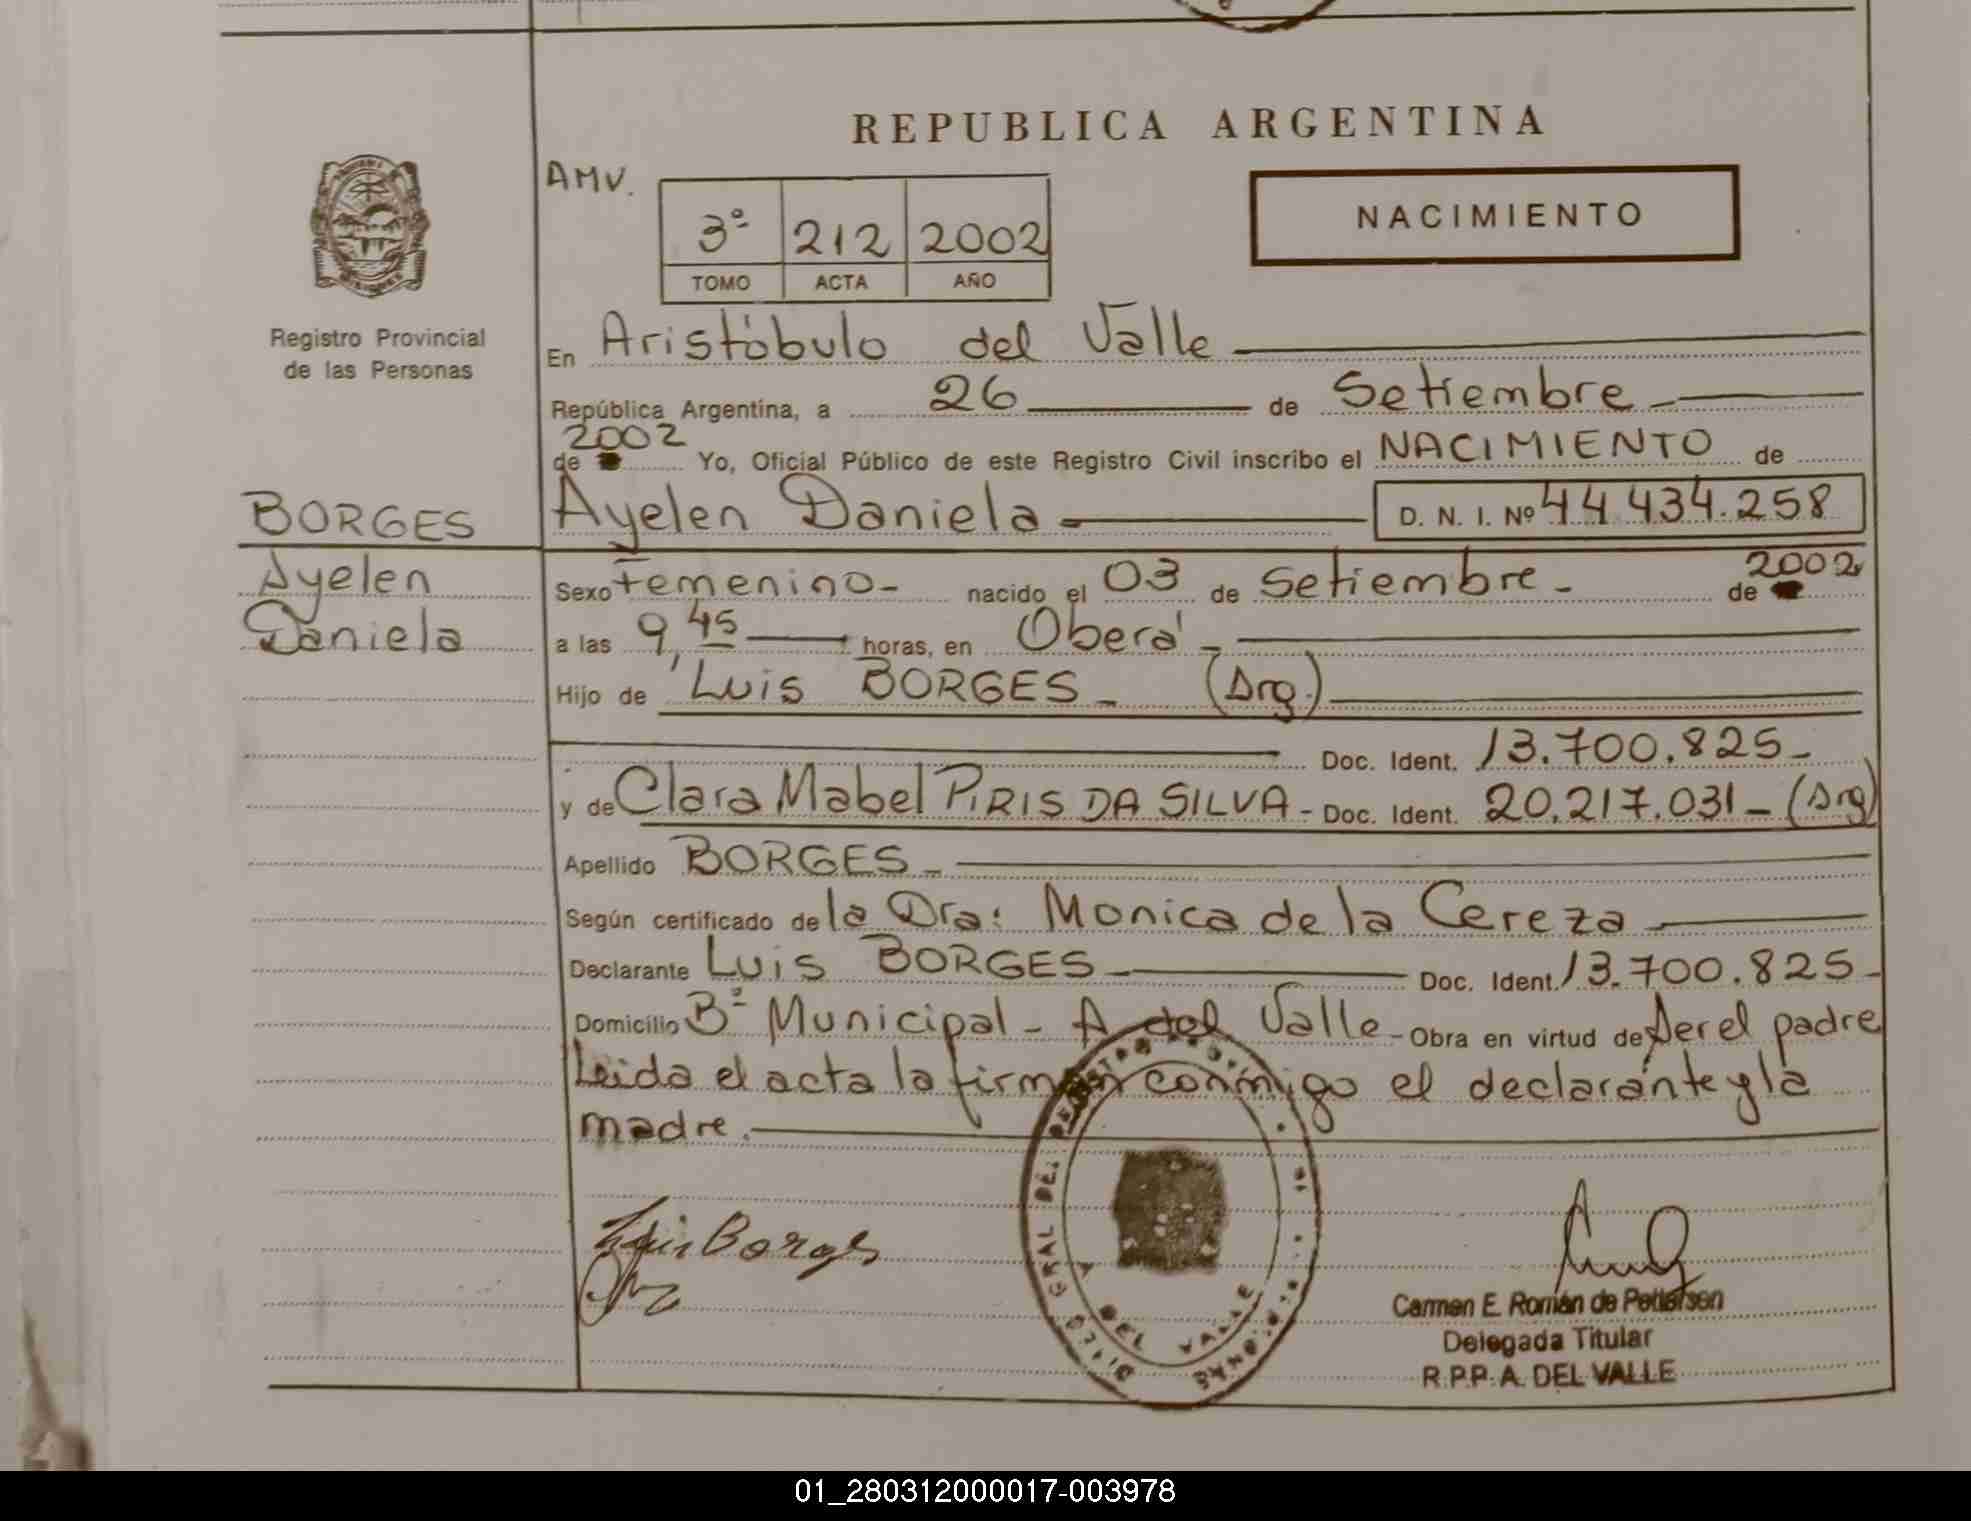 REPUBLICA ARGENTINA
AMV.
3º 212 2002
TOMO ACTA AÑO
NACIMIENTO
Registro Provincial
de las Personas
En Aristóbulo del Valle
República Argentina, a 26 de Setiembre
2002
de Yo, Oficial Público de este Registro Civil inscribo el NACIMIENTO de
BORGES
Ayelen
Daniela
Ayelen Daniela D. N. I. Nº 44.434.258
Sexo Femenino nacido el 03 de Setiembre de 2002
a las 9,45 horas, en Oberá
Hijo de Luis BORGES (Arg.)
Doc. Ident. 13.700.825
y de Clara Mabel PIRIS DA SILVA - Doc. Ident. 20.217.031 - (Arg)
Apellido BORGES
Según certificado de la Dra: Monica de la Cereza
Declarante Luis BORGES Doc. Ident. 13.700.825
Domicilio Bº Municipal - A del Valle - Obra en virtud de ser el padre
Leida el acta la firman conmigo el declarante y la
madre.
Luis Borges
Carmen E. Román de Petterson
Delegada Titular
R.P.P. A. DEL VALLE
DEL VALLE
01_280312000017-003978